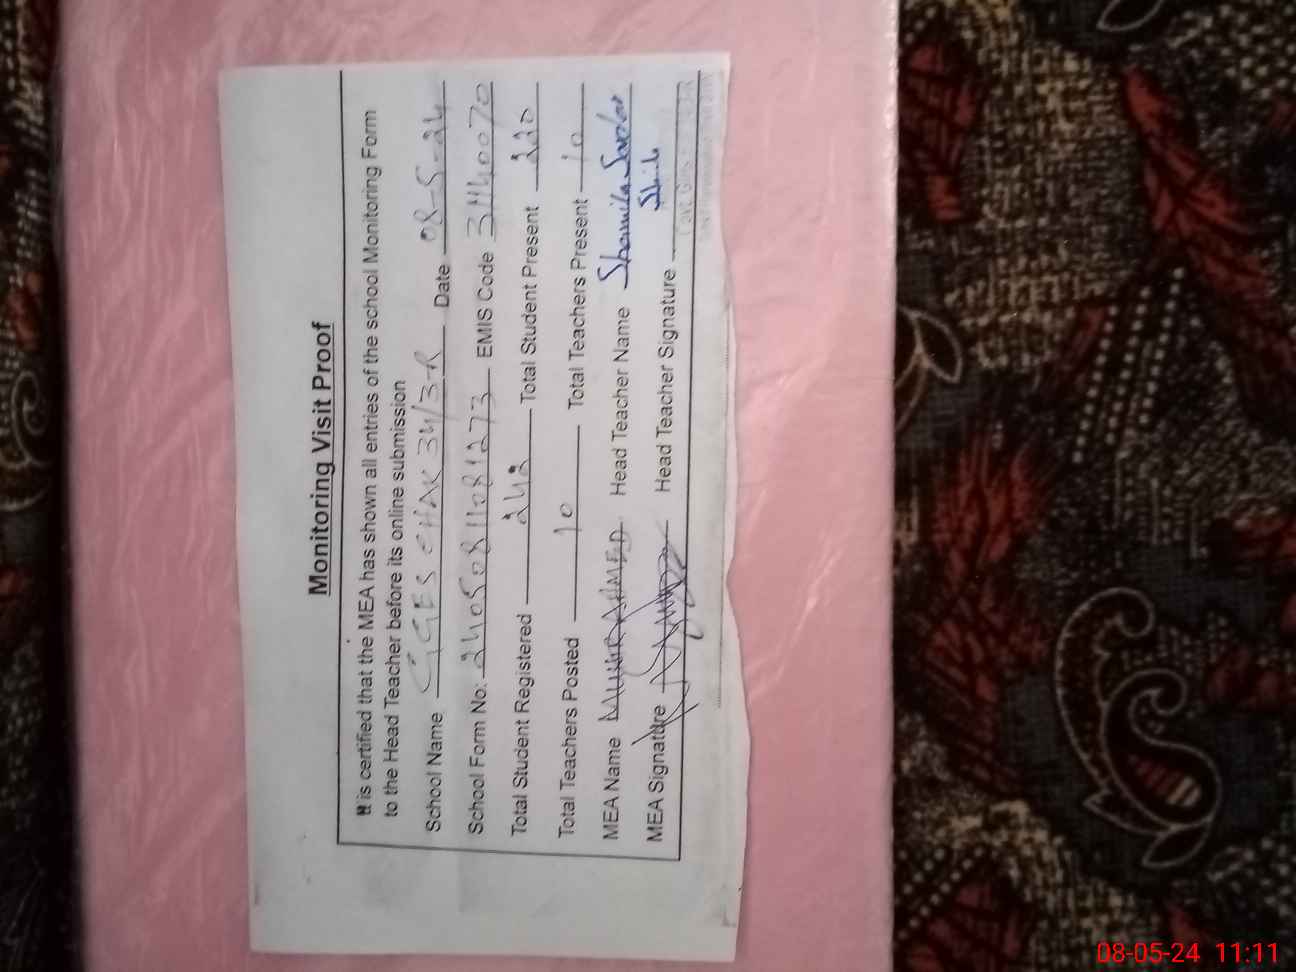 Monitoring Visit Proof
It is certified that the MEA has shown all entries of the school Monitoring Form
to the Head Teacher before its online submission
School Name GGES CHAK 34/3-R Date 08-5-24
School Form No: 24050811081273 EMIS Code 31140070
Total Student Registered 242 Total Student Present 220
Total Teachers Posted 10 Total Teachers Present 10
MEA Name AHMED Head Teacher Name Shamila Sardar
MEA Signature Head Teacher Signature
08-05-24 11:11